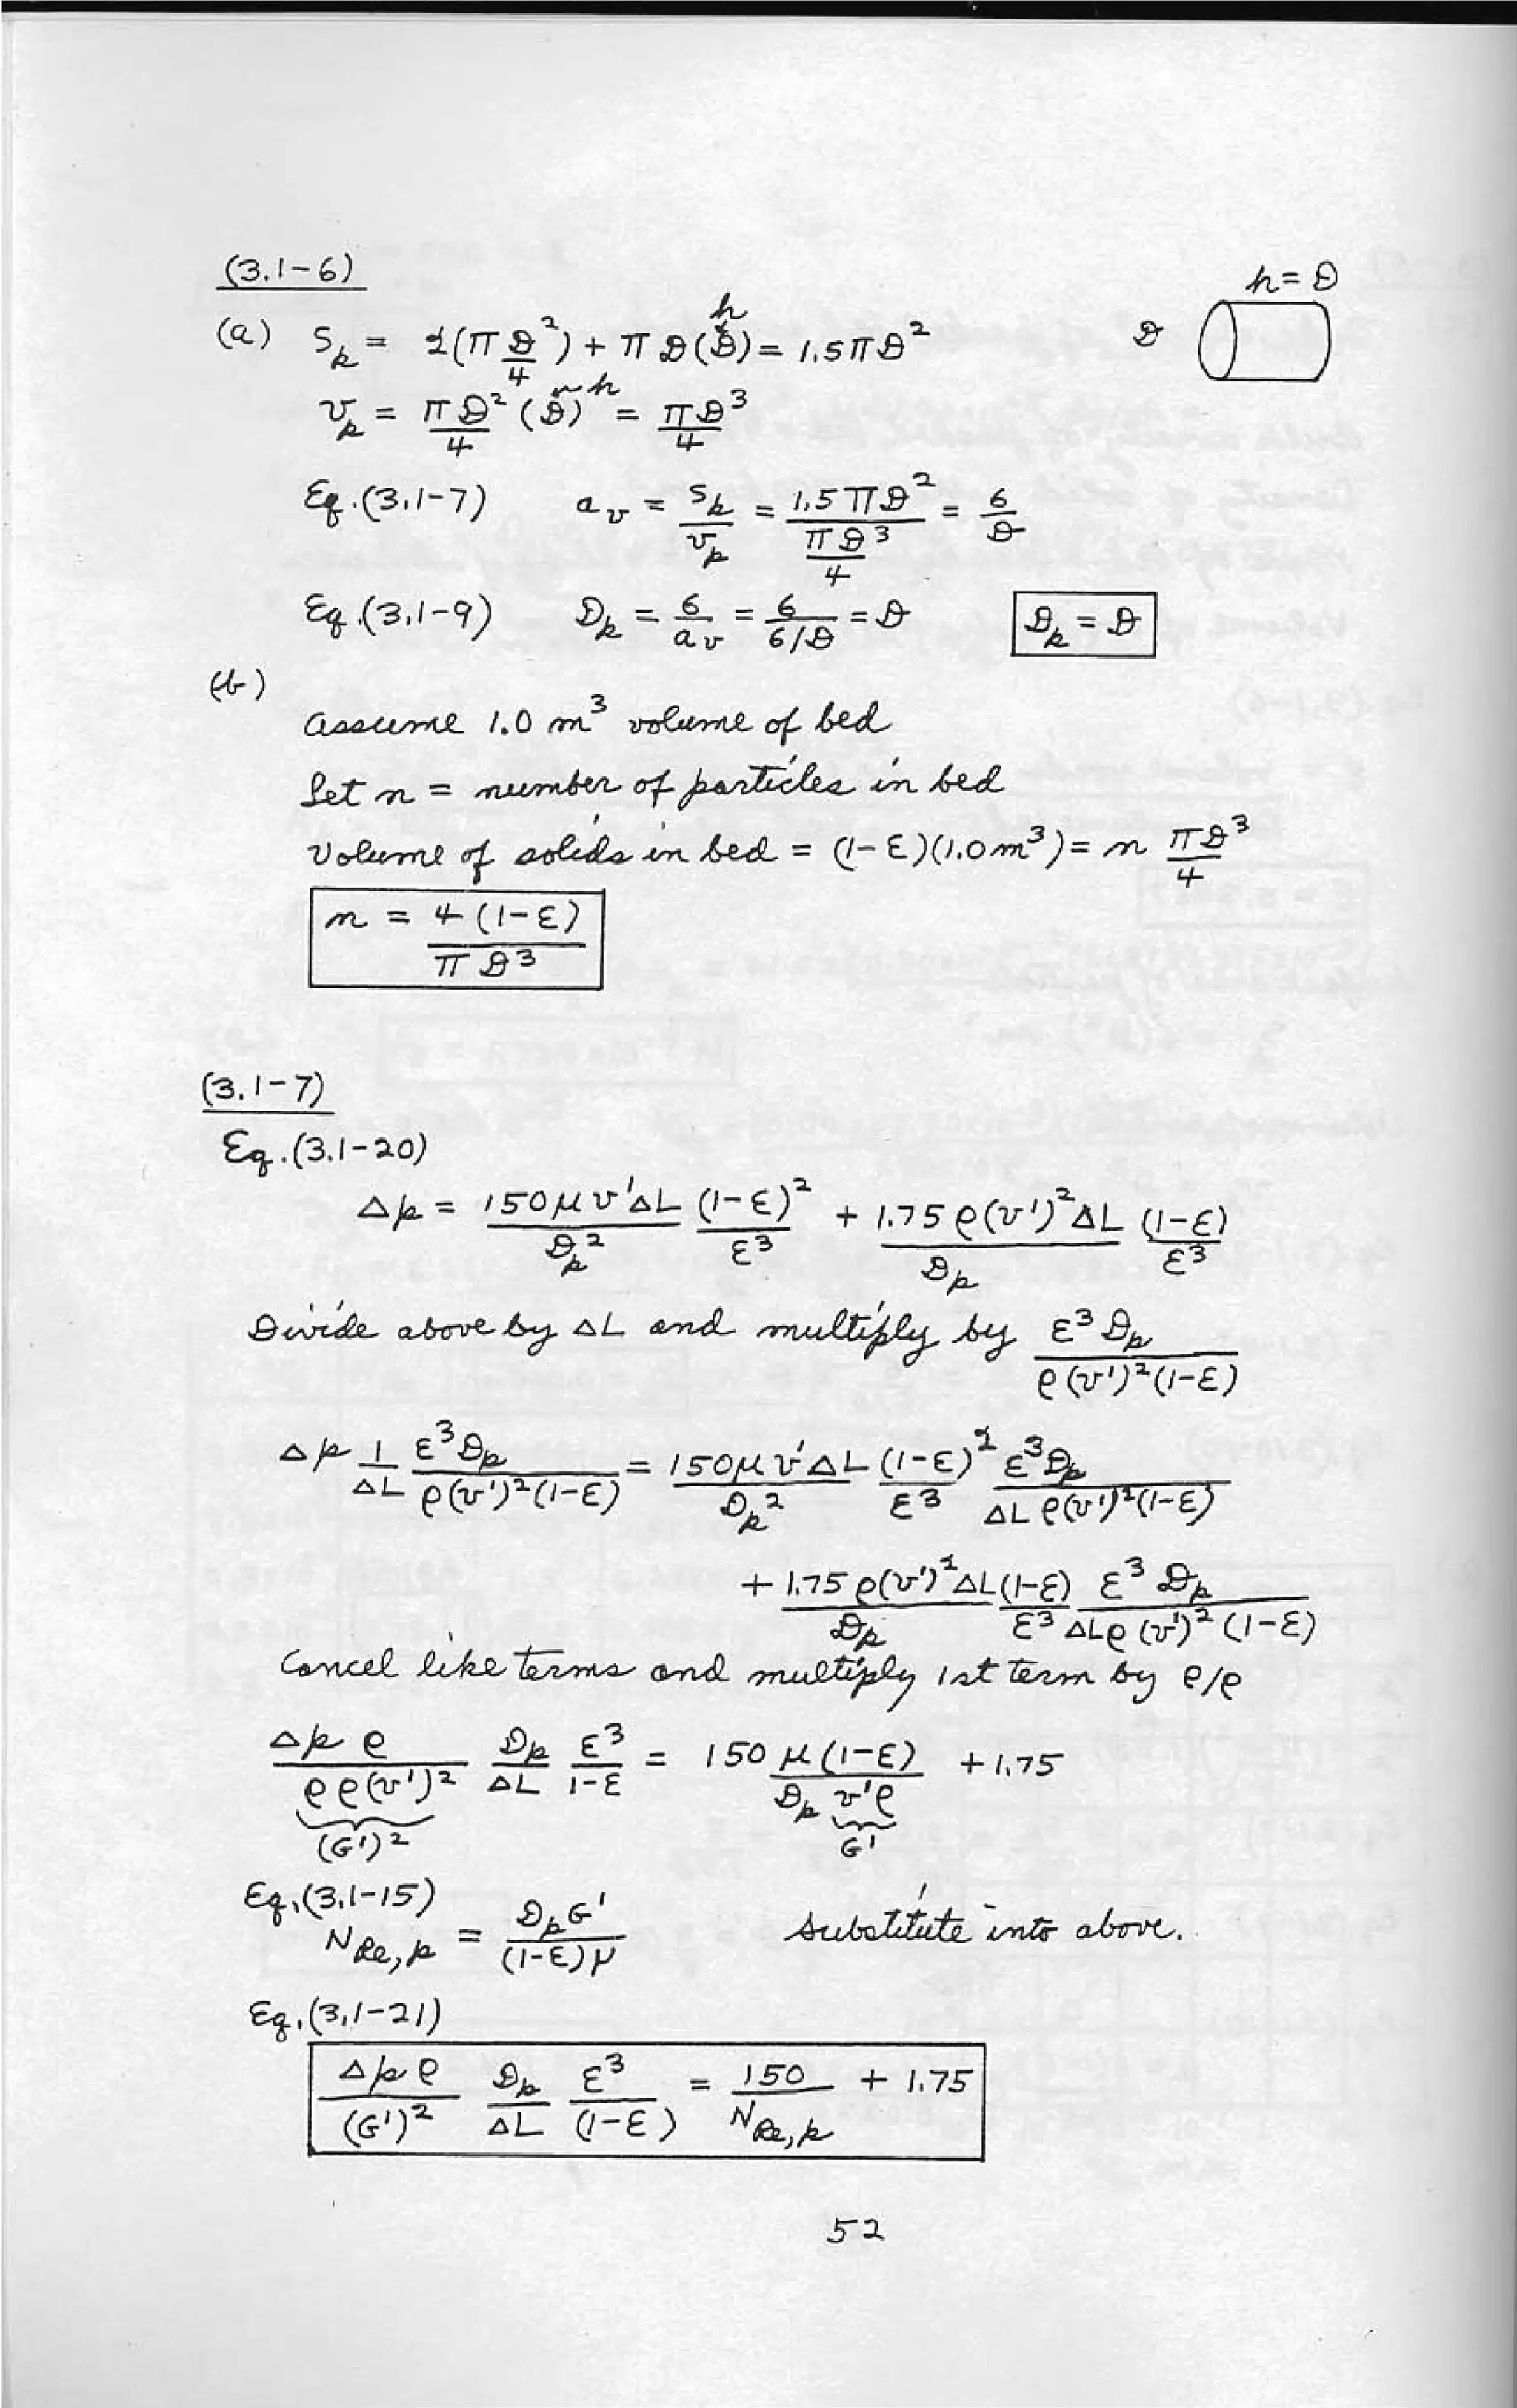 (3.1-6)
h = D
(a) Sp = 2(πD²/4) + πD(D) = 1.5πD²
h
D
vp = πD²/4 (D) = πD³/4
h
Eq.(3.1-7) av = Sp/vp = 1.5πD²/(πD³/4) = 6/D
Eq.(3.1-9) Dp = 6/av = 6/(6/D) = D Dp = D
(b)
Assume 1.0 m³ volume of bed
Let n = number of particles in bed
Volume of solids in bed = (1-ε)(1.0 m³) = n πD³/4
n = 4(1-ε)/πD³
(3.1-7)
Eq.(3.1-20)
Δp = 150μv'ΔL/Dp² (1-ε)²/ε³ + 1.75ρ(v')²ΔL/Dp (1-ε)/ε³
Divide above by ΔL and multiply by ε³Dp/ρ(v')²(1-ε)
Δp 1/ΔL ε³Dp/ρ(v')²(1-ε) = 150μv'ΔL/Dp² (1-ε)²/ε³ ε³Dp/ΔLρ(v')²(1-ε)
+ 1.75ρ(v')²ΔL/Dp (1-ε)/ε³ ε³Dp/ΔLρ(v')²(1-ε)
Cancel like terms and multiply 1st term by ρ/ρ
Δp ρ/ρρ(v')² Dp/ΔL ε³/1-ε = 150 μ(1-ε)/Dp v'ρ + 1.75
(G')² G'
Eq.(3.1-15)
NRe,p = DpG'/(1-ε)μ Substitute into above.
Eq.(3.1-21)
Δpρ/(G')² Dp/ΔL ε³/(1-ε) = 150/NRe,p + 1.75
52